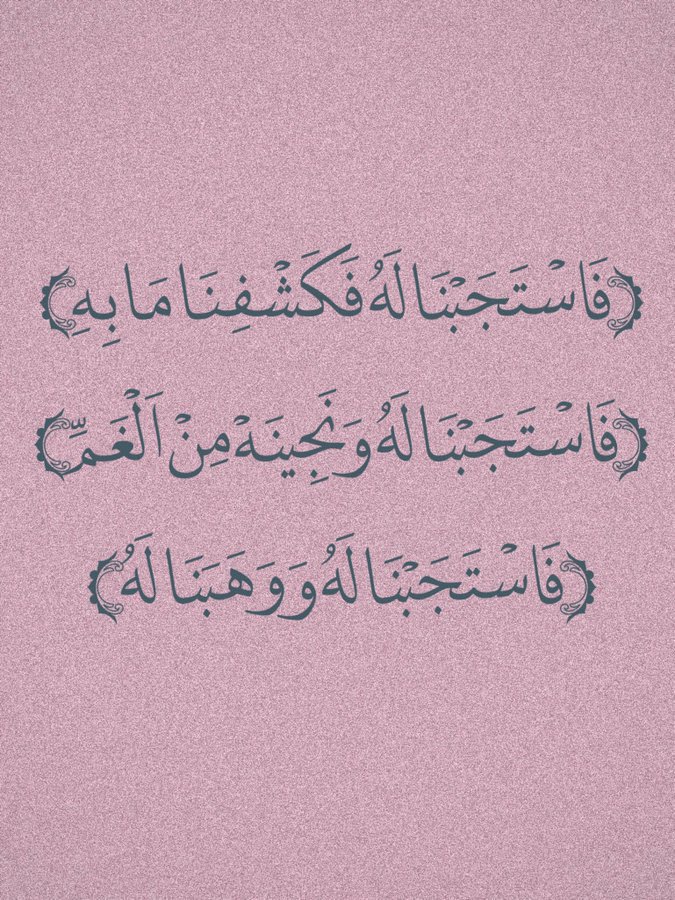 ﴿فَاسْتَجَبْنَا لَهُ فَكَشْفِنَا مَا بِهِ﴾
﴿فَاسْتَجَبْنَا لَهُ وَنَجِينَهْ مِنْ اَلْغَمِّ﴾
﴿فَاسْتَجَبْنَا لَهُ وَوَهَبَنَا لَهُ﴾